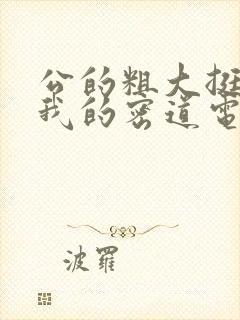 公的粗大挺
我的密道電
波羅